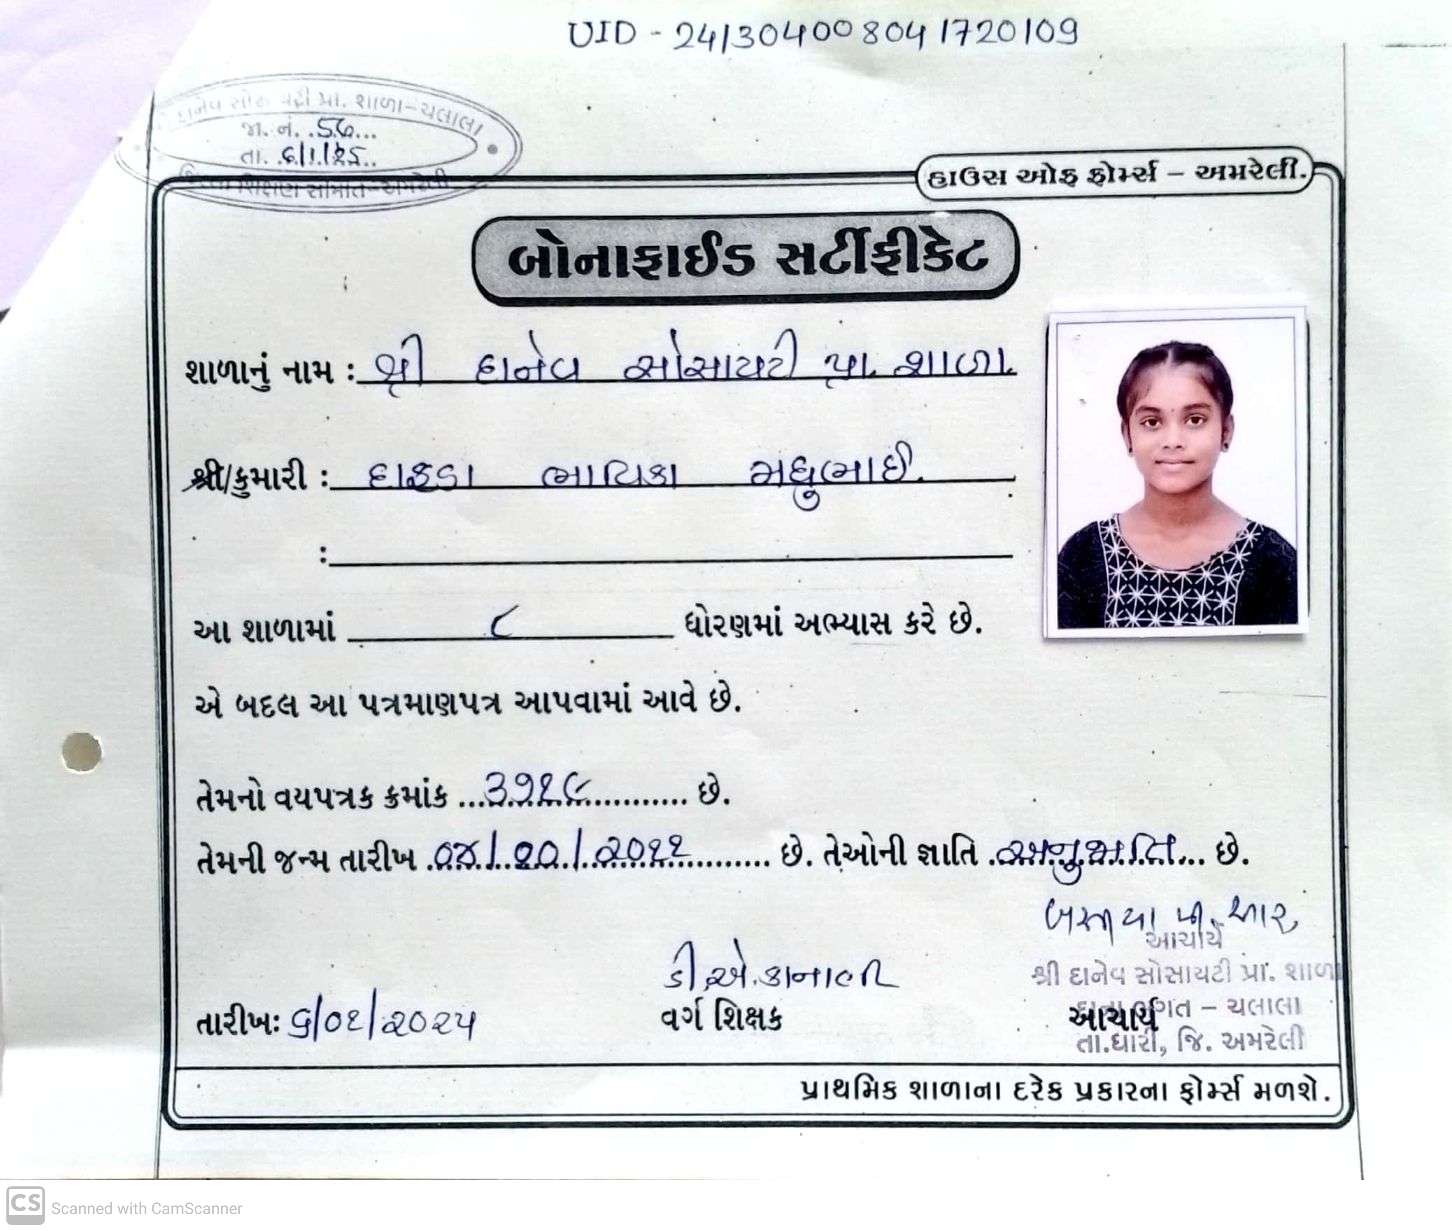 UID - 24130400804 1720109
દાનેવ સોસાયટી પ્રા. શાળા-ચલાલા
જા. નં. 56
તા. ૬/૧/૨૫
જિલ્લા શિક્ષણ સમિતિ-અમરેલી
હાઉસ ઓફ ફોર્મ્સ – અમરેલી.
બોનાફાઈડ સર્ટીફીકેટ
શાળાનું નામ : શ્રી દાનેવ સોસાયટી પ્રા. શાળા.
શ્રી/કુમારી : દાફડા ભાવિકા મધુભાઈ.
:
આ શાળામાં ૮ ધોરણમાં અભ્યાસ કરે છે.
એ બદલ આ પત્રમાણપત્ર આપવામાં આવે છે.
તેમનો વયપત્રક ક્રમાંક ...૩૭૧૯... છે.
તેમની જન્મ તારીખ .૦૪/૧૦/૨૦૧૧... છે. તેઓની જ્ઞાતિ .અનુ.જાતિ... છે.
પી. આર.
આચાર્ય
શ્રી દાનેવ સોસાયટી પ્રા. શાળા
ડી.એ.
– ચલાલા
તારીખઃ ૬/૦૧/૨૦૨૫ વર્ગ શિક્ષક આચાર્ય
તા.ધારી, જિ. અમરેલી
પ્રાથમિક શાળાના દરેક પ્રકારના ફોર્મ્સ મળશે.
CS Scanned with CamScanner